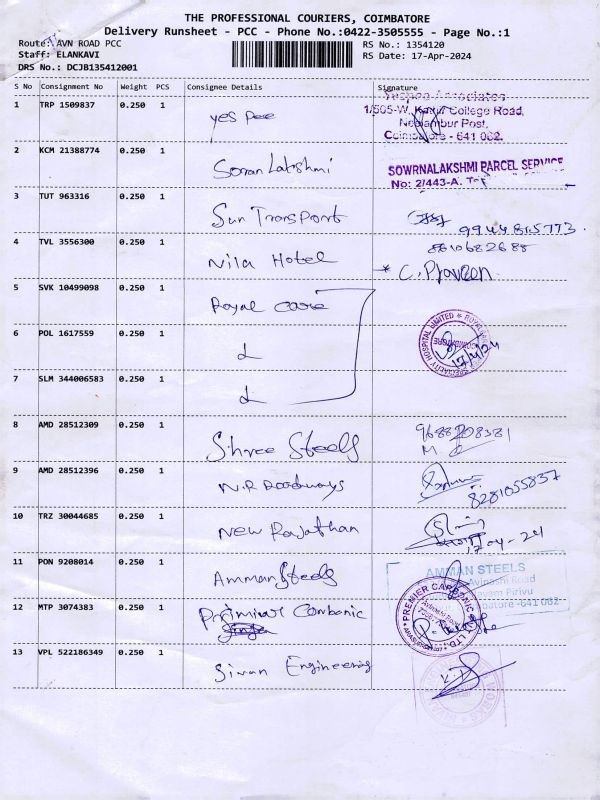 THE PROFESSIONAL COURIERS, COIMBATORE
Delivery Runsheet - PCC - Phone No.:0422-3505555 - Page No.:1
Route: AVN ROAD PCC RS No.: 1354120
Staff: ELANKAVI RS Date: 17-Apr-2024
DRS No.: DCJB135412001
S No Consignment No Weight PCS Consignee Details Signature
1 TRP 1509837 0.250 1 yes pee Associates
1/505-W, College Road,
Neelambur Post,
Coimbatore - 641 062.
2 KCM 21388774 0.250 1 Soran Lakshmi SOWRNALAKSHMI PARCEL SERVICE
No: 2/443-A.
3 TUT 963316 0.250 1 Sun Transport 9944815773
4 TVL 3556300 0.250 1 Nila Hotel 8610682688
* C. Praveen
5 SVK 10499098 0.250 1 Royal care
6 POL 1617559 0.250 1 17/4/24
7 SLM 344006583 0.250 1
8 AMD 28512309 0.250 1 Shree Steels
9 AMD 28512396 0.250 1 N.R Roadways 8281055837
10 TRZ 30044685 0.250 1 New Rajathan 17-04-24
11 PON 9208014 0.250 1 Amman Steels AMMAN STEELS
Avinashi Road
Pirivu
-641 062
12 MTP 3074383 0.250 1 Primiur Combonic PREMIER
13 VPL 522186349 0.250 1 Sivan Engineering